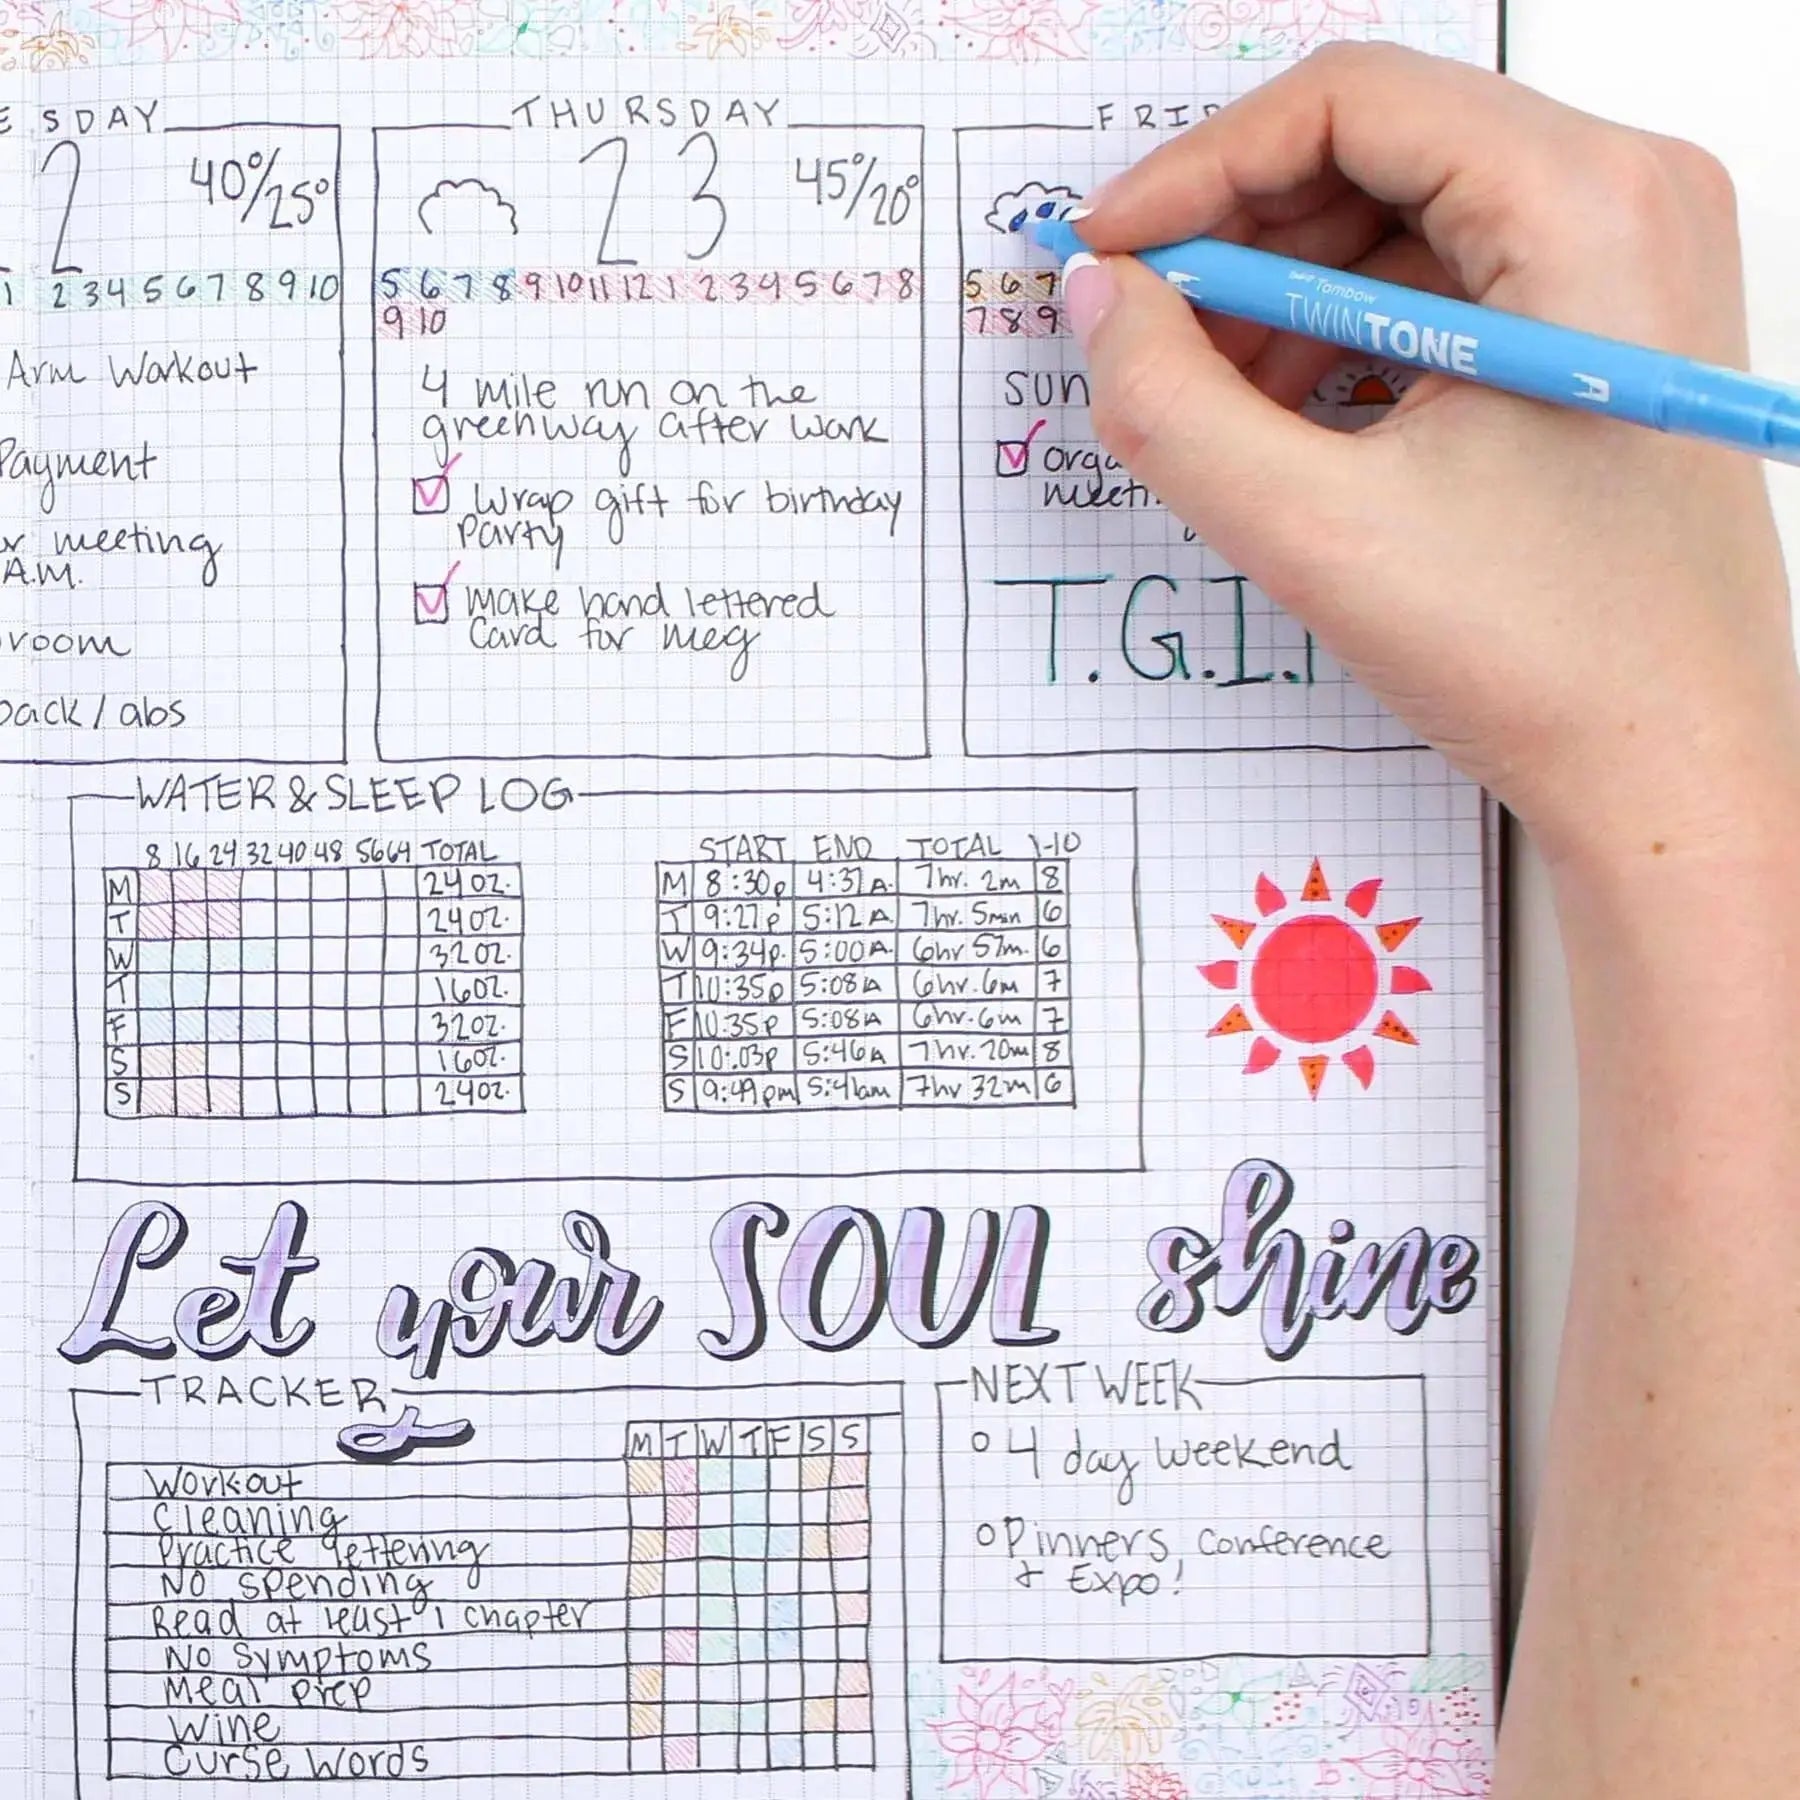 E SDAY
2
40°/25°
1 2 3 4 5 6 7 8 9 10
Arm Workout
Payment
meeting
A.M.
room
back / abs
THURSDAY
23
45°/20°
5 6 7 8 9 10 11 12 1 2 3 4 5 6 7 8
9 10
4 mile run on the
greenway after work
wrap gift for birthday
party
make hand lettered
card for meg
FRI
5 6 7
7 8 9
SUN
orga
meeti
T.G.I.
Tombow
TWINTONE
WATER & SLEEP LOG
8 16 24 32 40 48 56 64 TOTAL
M 24 oz.
T 24 oz.
W 32 oz.
T 16 oz.
F 32 oz.
S 16 oz.
S 24 oz.
START END TOTAL 1-10
M 8:30p 4:37A. 7hr. 2m 8
T 9:27p 5:12A 7hr. 5min 6
W 9:34p. 5:00A. 6hr 57m. 6
T 10:35p 5:08A 6hr. 6m 7
F 10:35p 5:08A 6hr. 6m 7
S 10:03p 5:46A 7hr. 20m 8
S 9:49pm 5:41am 7hr 32m 6
Let your SOUL shine
TRACKER
M T W T F S S
Workout
Cleaning
Practice lettering
No spending
Read at least 1 chapter
No symptoms
Meal prep
Wine
Curse words
NEXT WEEK
4 day weekend
Pinners conference
+ Expo!